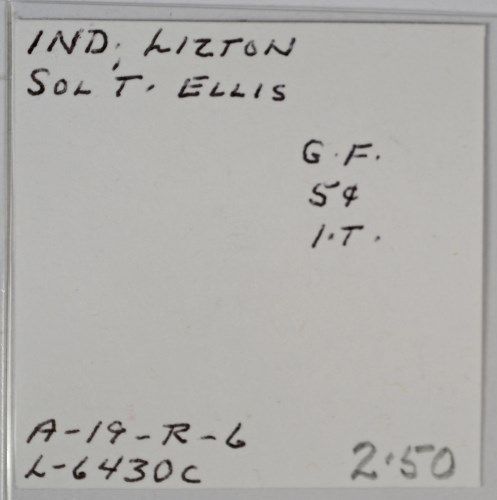 IND, LIZTON
SOL T. ELLIS
G.F.
5¢
I.T.
A-19-R-6
L-6430C
2.50